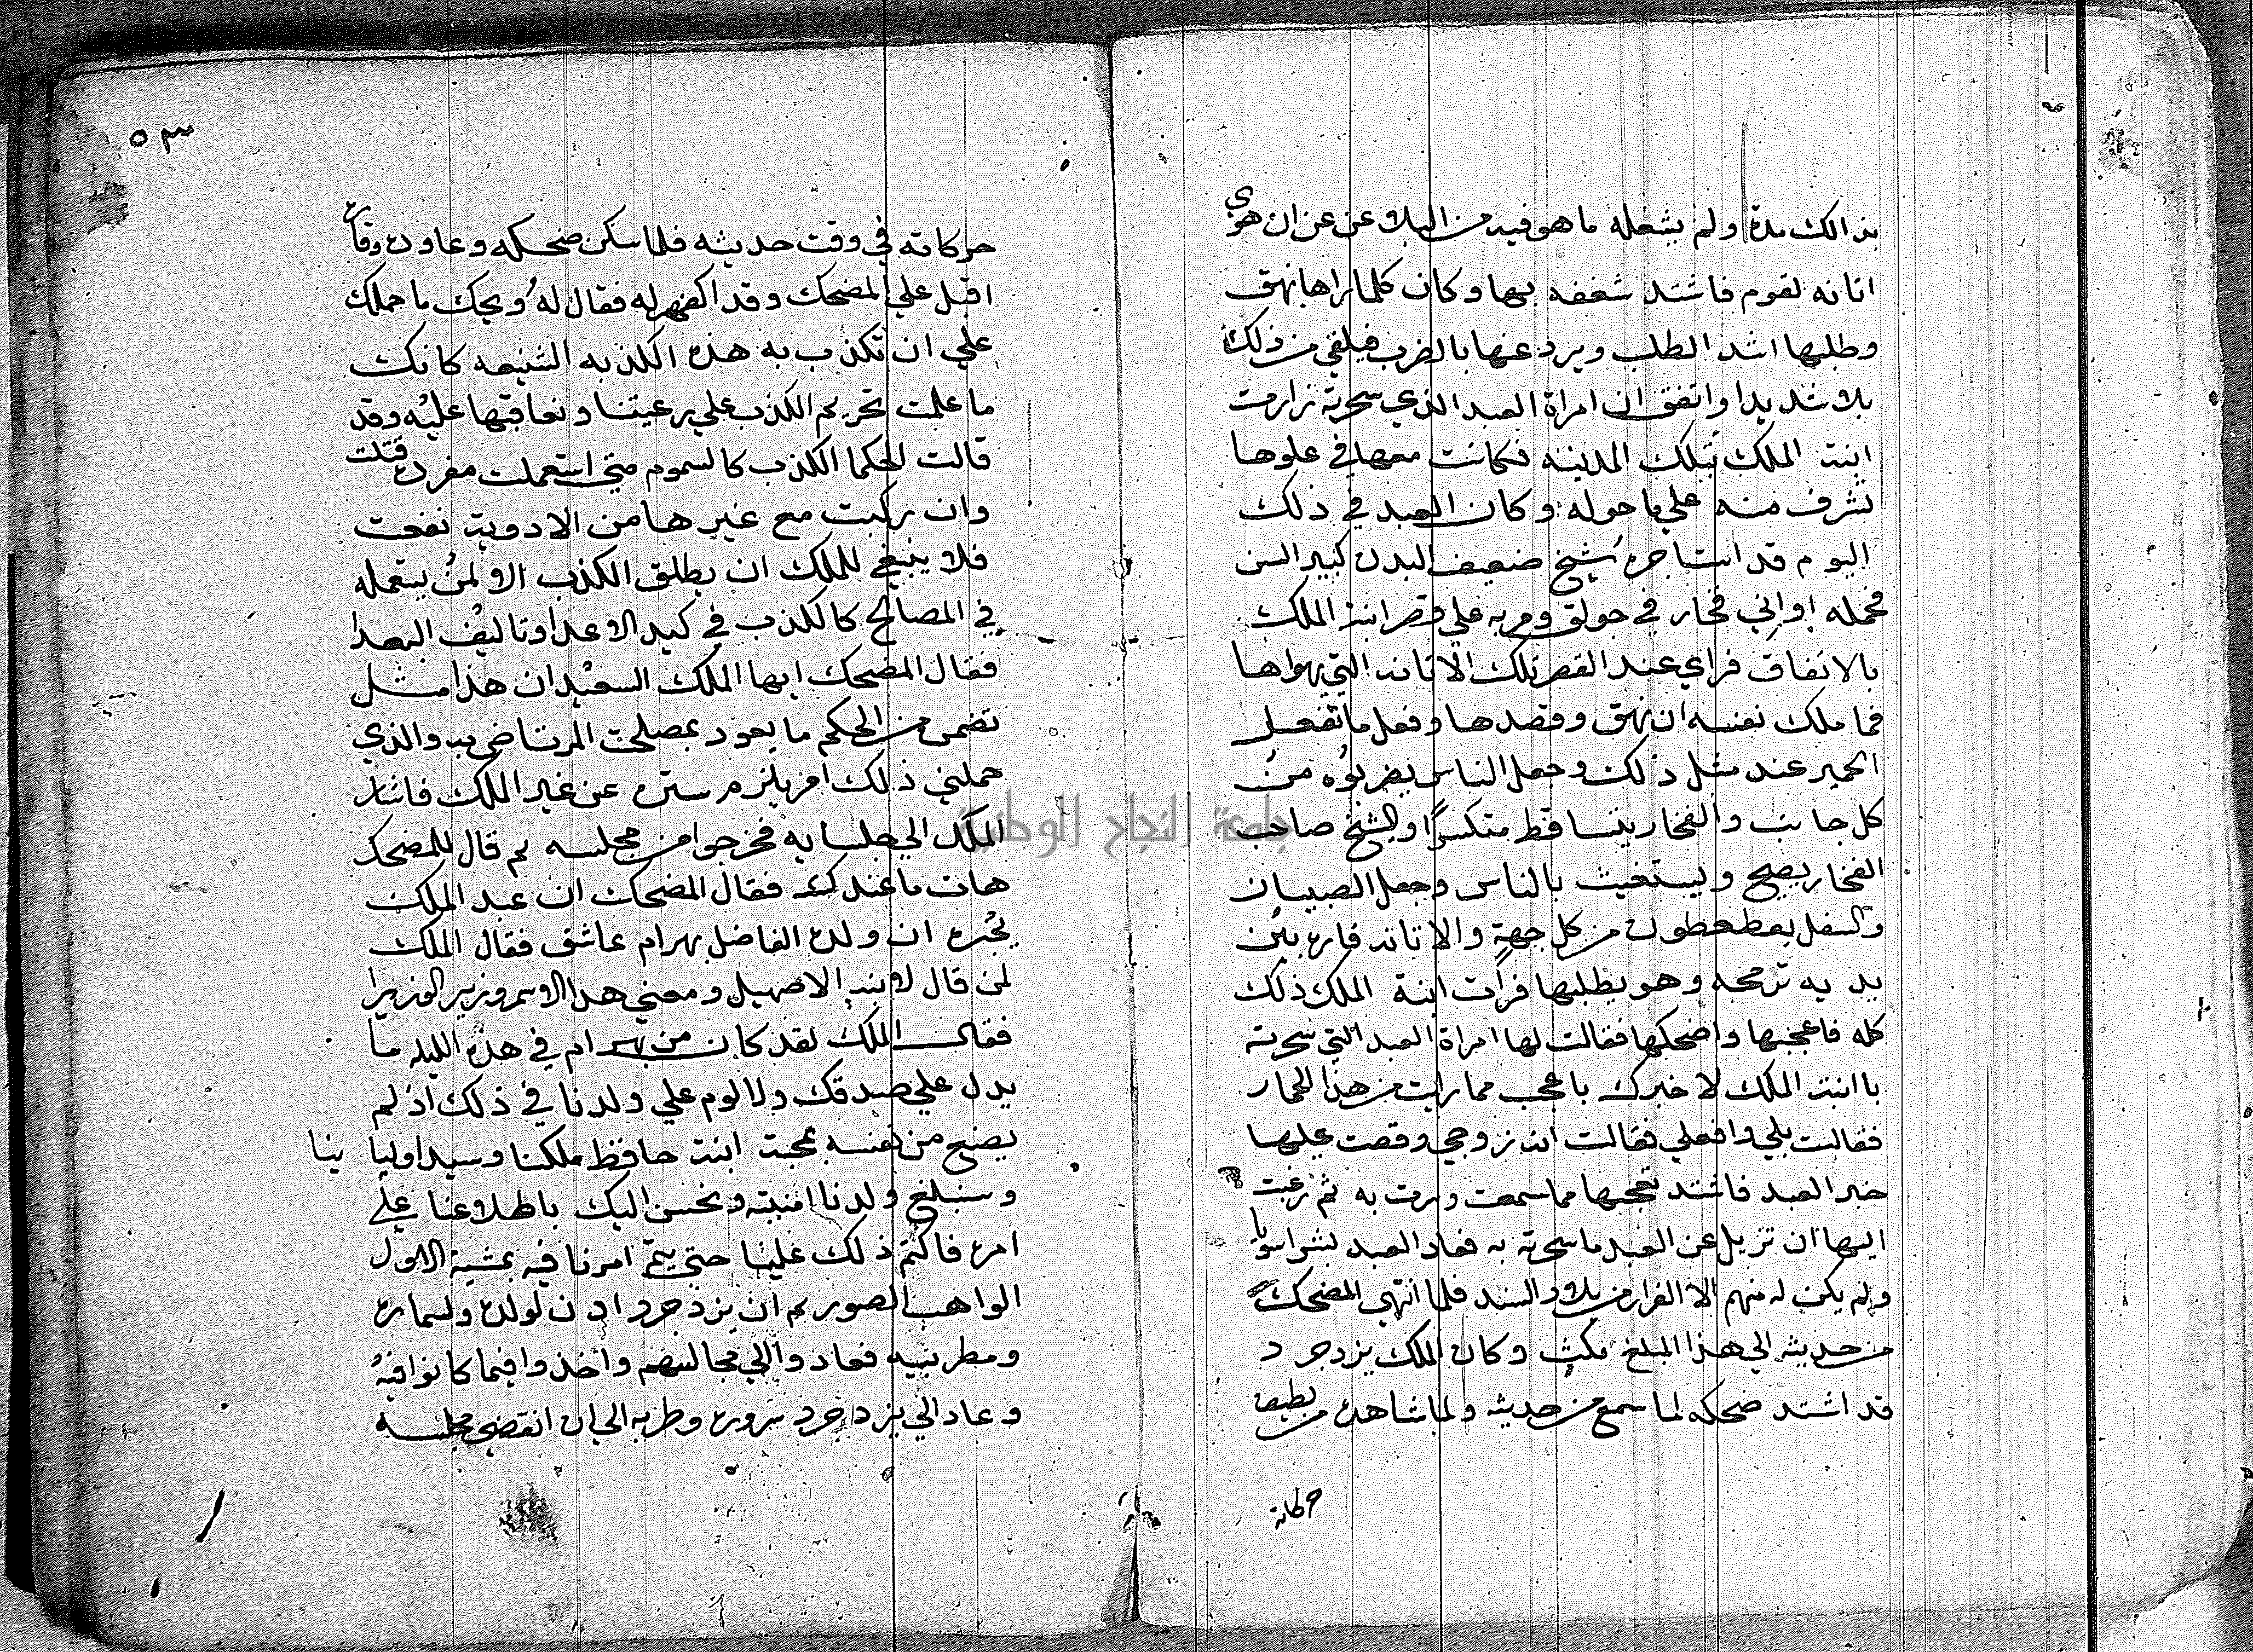 بذالك مدة ولم يشغله ما هو فيه من البلاء عن عن ان هوي
اتانه لقوم فاشتد شغفه بها وكان كلما راها نهق
وطلبها اشد الطلب ويرد عنها بالضرب فيلقي من ذلك
بلاء شديدا واتفق ان امراة العبد الذي سحرته زارت
ابنت الملك بتلك المدينه فكانت معها في علوها
تشرف منه علي ما حوله وكان العبد في ذلك
اليوم قد استاجره شيخ ضعيف البدن كبير السن
فحمله اواني فخار في جولق ومر به علي قصر ابنة الملك
بالاتفاق فراي عند القصر تلك الاتانه التي يهواها
فما ملك نفسه ان نهق وقصدها وفعل ما تفعل
الحمير عند مثل ذلك وجعل الناس يضربوه من
كل جانب والفخار يتساقط متكسرًا والشيخ صاحب
الفخار يصيح ويستغيث بالناس وجعل الصبيان
والسفل يعطعطون من كل جهةٍ والاتانه فاره بين
يديه ترمحه وهو يطلبها فرات ابنة الملك ذلك
كله فاعجبها واضحكها فقالت لها امراة العبد التي سحرته
يا ابنة الملك لا خبرك باعجب مما رايت من هذا الحمار
فقالت بلي وافعلي فقالت انه زوجي وقصت عليها
خبر العبد فاشتد تعجبها مما سمعت وسرت به ثم رغبت
اليها ان تزيل عن العبد ما سحرته به فعاد العبد بشرا سويا
ولم يكن له منهم الا الفرار من بلاد السند فلما انتهي المضحك
من حديثه الي هذا المبلغ مكث وكان الملك يزدجرد
قد اشتد ضحكه لما سمع من حديثه ولما شاهده من لطيف
حركاته
٥٣
حركاته في وقت حديثه فلما سكن ضحكه وعاوده وقاره
اقبل علي المضحك وقد اكفهر له فقال له ويحك ما حملك
علي ان تكذب به هذه الكذبه الشنيعه كانك
ما علمت تحريم الكذب علي رعيتنا ونعاقبها عليه وقد
قالت الحكما الكذب كالسموم متي استعملت مفرده قتلت
وان ركبت مع غيرها من الادوية نفعت
فلا ينبغي للملك ان يطلق الكذب الا لمن يستعمله
في المصالح كالكذب في كيد الاعدا وتاليف البعدا
فقال المضحك ايها الملك السعيد ان هذا مثل
تضمن من الحكم ما يعود بمصلحت المرتاض به والذي
حملني ذلك امر يلزم ستره عن غير الملك فاشار
الملك الي جلسايه فخرجوا من مجلسه ثم قال للمضحك
هات ما عندك فقال المضحك ان عبد الملك
يخبره ان ولده الفاضل بهرام عاشق فقال الملك
لمن قال لابنة الاصهبذ ومعني هذا الاسم وزير الوزيرا
فقال الملك لقد كان من بهرام في هذه الليله ما
يدل علي صدقك ولا لوم علي ولدنا في ذلك اذ لم
يضع من نفسه بمحبة ابنت حافظ ملكنا وسيد اوليا ينا
وسنبلغ ولدنا امنيته ونحسن اليك باطلاعنا علي
امره فاكتم ذلك علينا حتي يتم امرنا فيه بمشية الاول
الواهب الصور ثم ان يزدجرد اذن لولده ولسماره
ومطربيه فعادوا الي مجالسهم واخذوا فيما كانوا فيه
وعاد الي يزدجرد سروره وطربه الي ان انقضي مجلسه
جامعة النجاح الوطنية